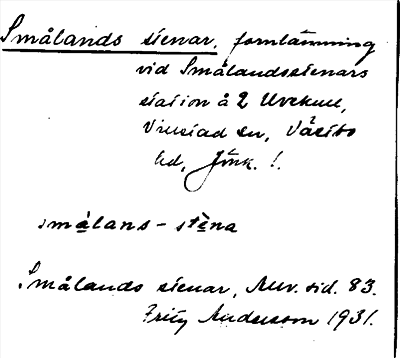 Smålands stenar, fornlämning
vid Smålandsstenars
station å 2 Uvekull,
Villstad sn, Västbo
hd, Jönk. l.
smålans - stena
Smålands stenar, Muv. sid. 83.
Fritz Andersson 1931.